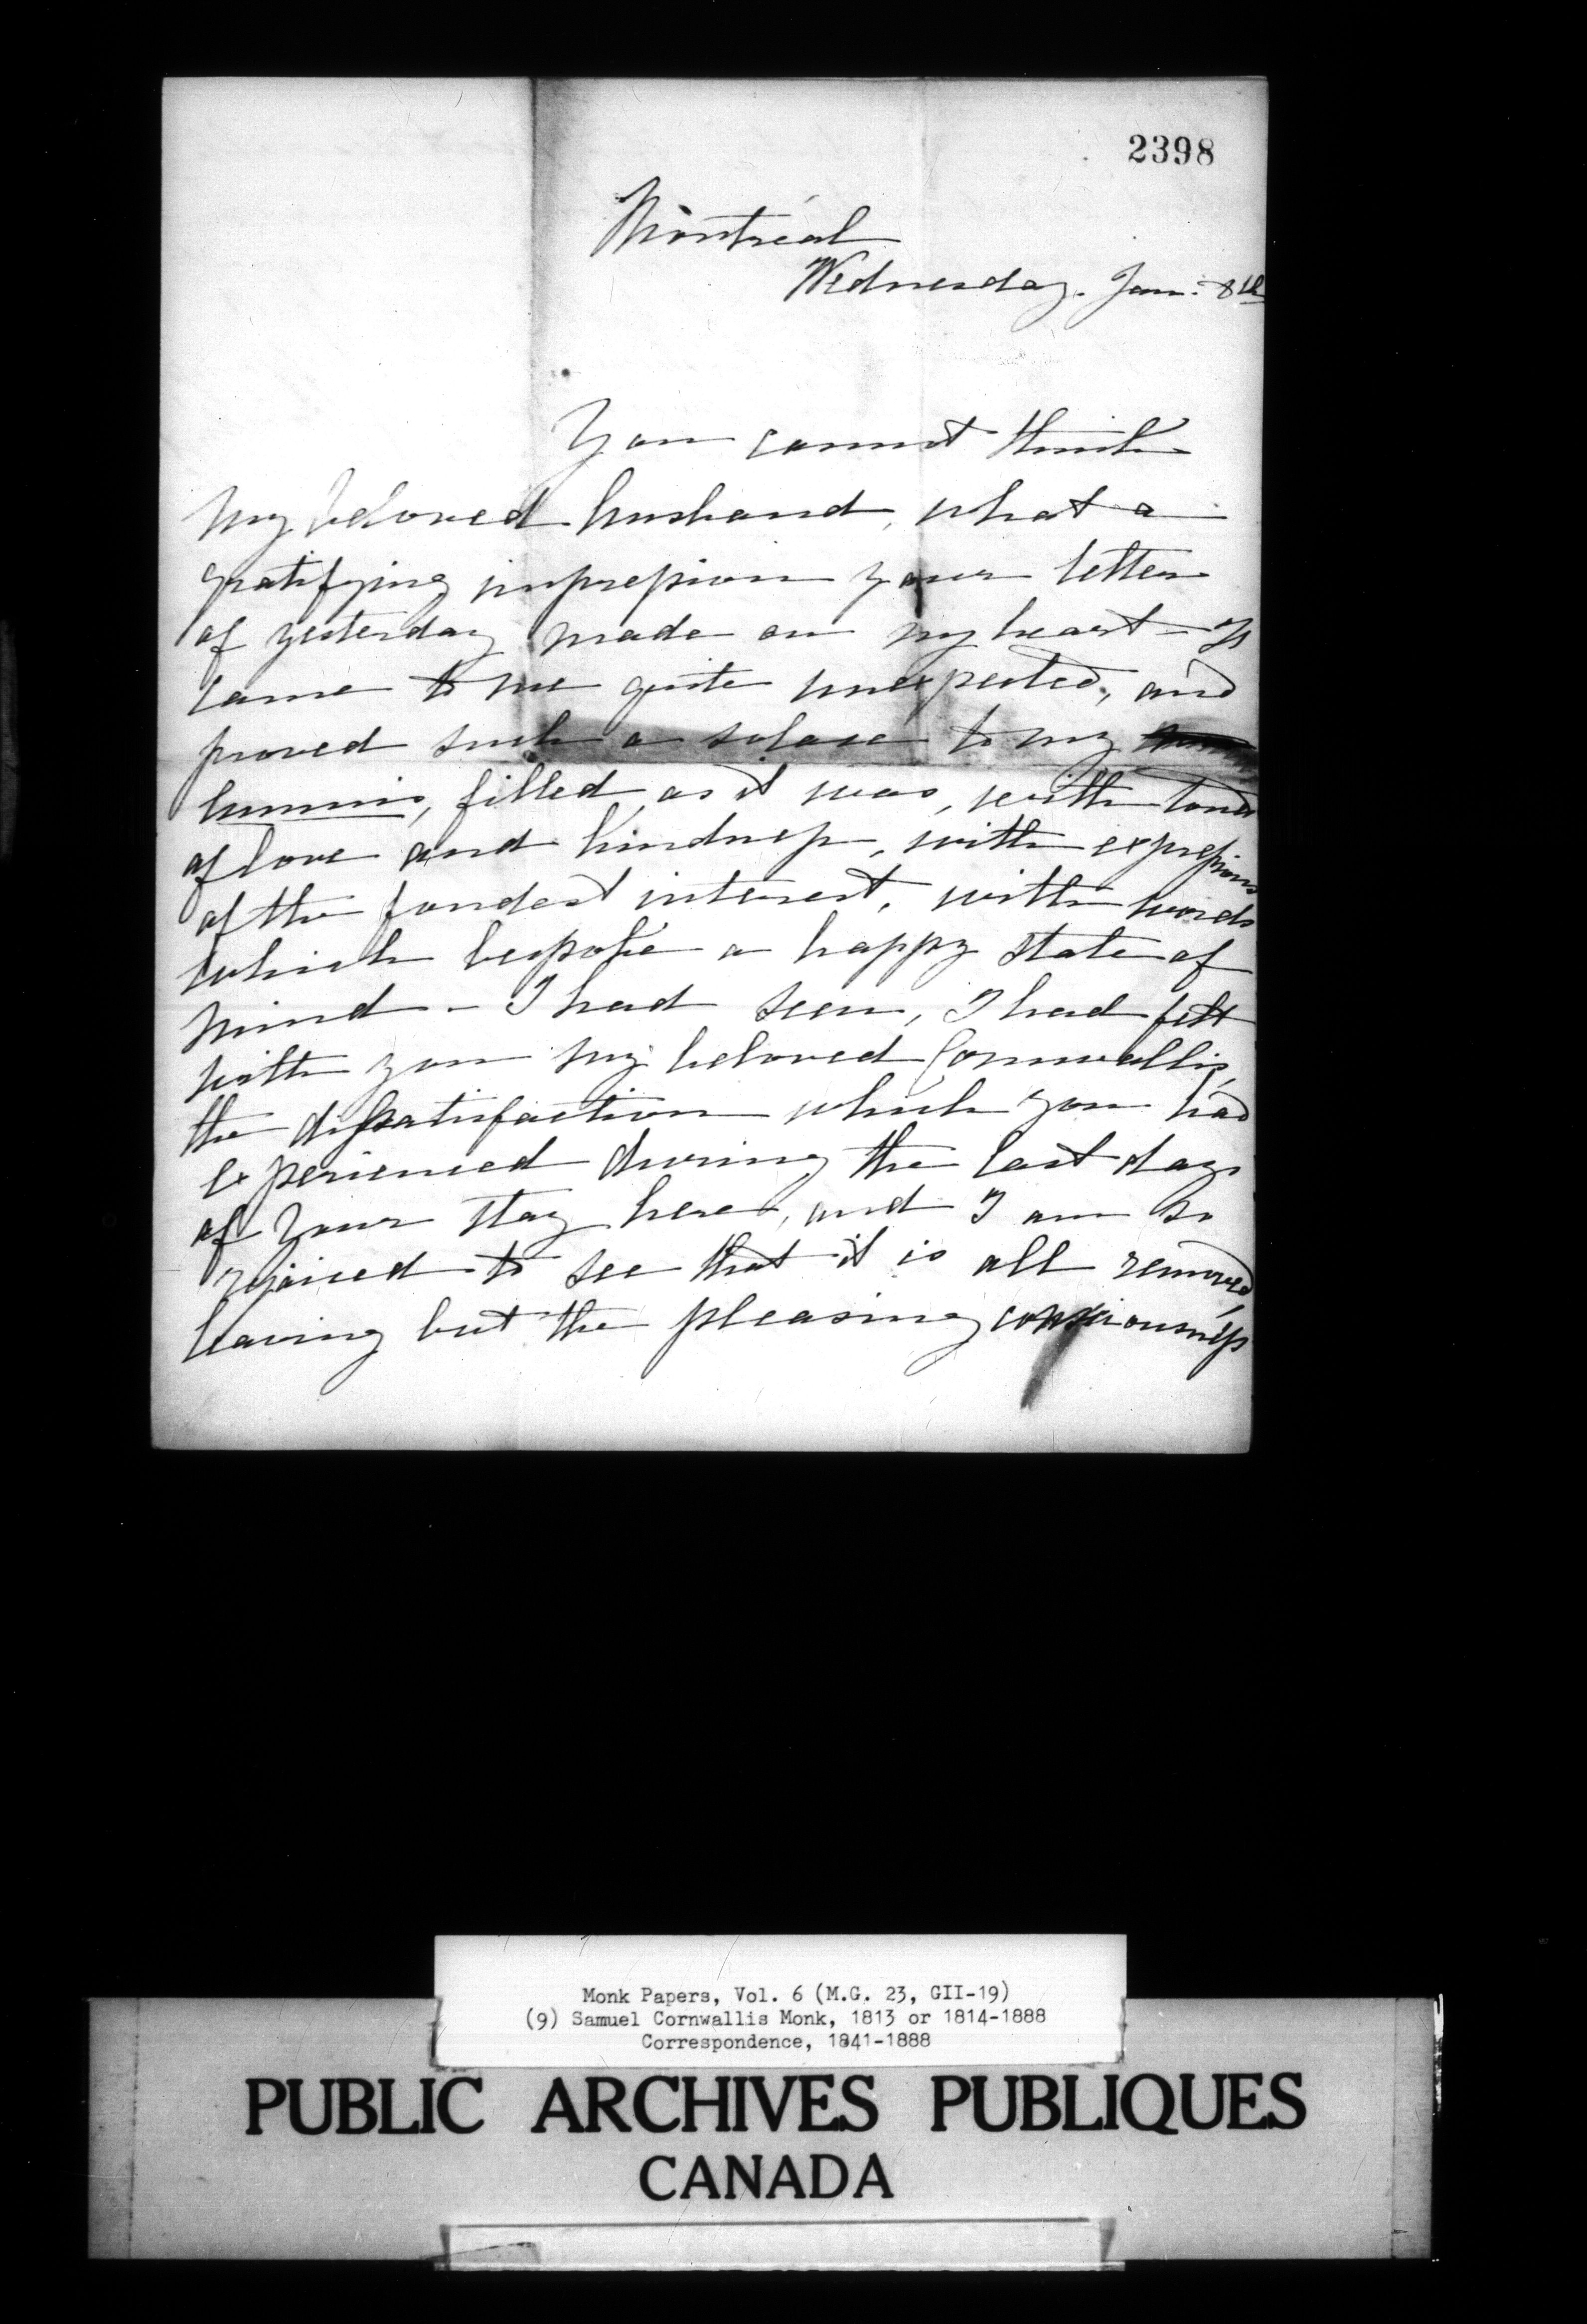 2398
Montréal
Wednesday. Jan: 8th
You cannot think
my beloved husband, what a
gratifying impression your letter
of yesterday made on my heart - It
came to me quite unexpected, and
proved such a solace to my
ennui, filled, as it was, with tones
of love and kindness, with expressions
of the fondest interest, with words
which bespoke a happy state of
mind - I had seen, I had felt
with you my beloved Cornwallis,
the dissatisfaction which you had
experienced during the last days
of your stay here, and I am so
rejoiced to see that it is all removed
leaving but the pleasing consciousness
Monk Papers, Vol. 6 (M.G. 23, GII-19)
(9) Samuel Cornwallis Monk, 1813 or 1814-1888
Correspondence, 1841-1888
PUBLIC ARCHIVES PUBLIQUES
CANADA